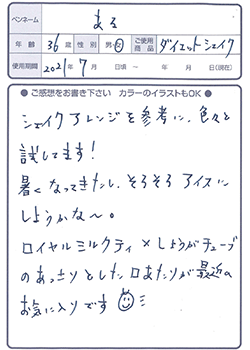 ペンネーム まる
年齢 36歳 性別 男・女 ご使用商品 ダイエットシェイク
使用期間 2021年 7月 日頃 ~ 年 月 日(現在)
● ご感想をお書き下さい カラーのイラストもOK ●
シェイクアレンジを参考に、色々と
試してます!
暑くなってきたし、そろそろアイスに
しようかな~。
ロイヤルミルクティ×しょうがチューブ
のあっさりとした口あたりが最近の
お気に入りです